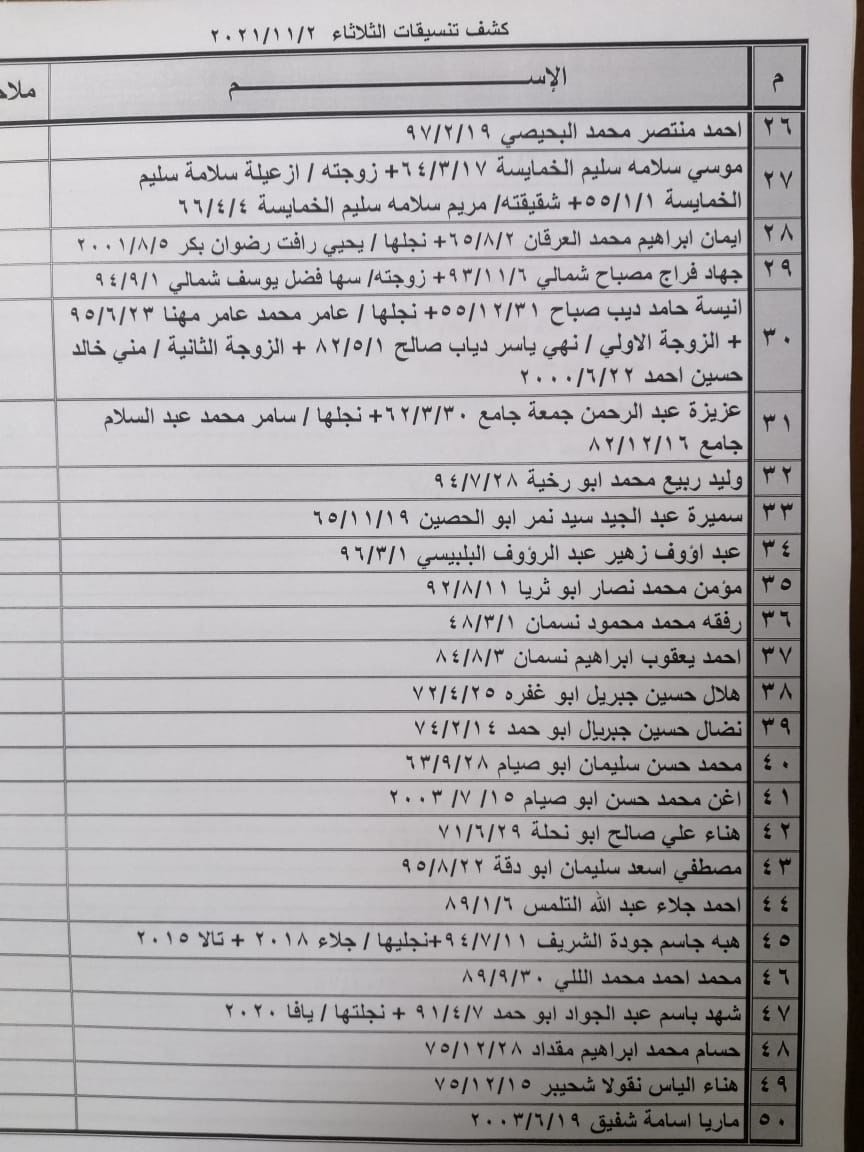 كشف تنسيقات الثلاثاء ٢٠٢١/١١/٢
م الإســـــم
٢٦ احمد منتصر محمد البحيصي ٩٧/٢/١٩
٢٧ موسي سلامه سليم الخمايسة ٦٤/٣/١٧+ زوجته / ازعيلة سلامة سليم
الخمايسة ٥٥/١/١+ شقيقته/ مريم سلامه سليم الخمايسة ٦٦/٤/٤
٢٨ ايمان ابراهيم محمد العرقان ٦٥/٨/٢+ نجلها / يحيي رافت رضوان بكر ٢٠٠١/٨/٥
٢٩ جهاد فراج مصباح شمالي ٩٣/١١/٦+ زوجته/ سها فضل يوسف شمالي ٩٤/٩/١
٣٠ انيسة حامد ديب صباح ٥٥/١٢/٣١+ نجلها / عامر محمد عامر مهنا ٩٥/٦/٢٣
+ الزوجة الاولي / نهي ياسر دياب صالح ٨٢/٥/١ + الزوجة الثانية / مني خالد
حسين احمد ٢٠٠٠/٦/٢٢
٣١ عزيزة عبد الرحمن جمعة جامع ٦٢/٣/٣٠+ نجلها / سامر محمد عبد السلام
جامع ٨٢/١٢/١٦
٣٢ وليد ربيع محمد ابو رخية ٩٤/٧/٢٨
٣٣ سميرة عبد الجيد سيد نمر ابو الحصين ٦٥/١١/١٩
٣٤ عبد اؤوف زهير عبد الرؤوف البلبيسي ٩٦/٣/١
٣٥ مؤمن محمد نصار ابو ثريا ٩٢/٨/١١
٣٦ رفقه محمد محمود نسمان ٤٨/٣/١
٣٧ احمد يعقوب ابراهيم نسمان ٨٤/٨/٣
٣٨ هلال حسين جبريل ابو غفره ٧٢/٤/٢٥
٣٩ نضال حسين جبريال ابو حمد ٧٤/٢/١٤
٤٠ محمد حسن سليمان ابو صيام ٦٣/٩/٢٨
٤١ اغن محمد حسن ابو صيام ١٥/ ٧/ ٢٠٠٣
٤٢ هناء علي صالح ابو نحلة ٧١/٦/٢٩
٤٣ مصطفي اسعد سليمان ابو دقة ٩٥/٨/٢٢
٤٤ احمد جلاء عبد الله التلمس ٨٩/١/٦
٤٥ هبه جاسم جودة الشريف ٩٤/٧/١١+نجليها / جلاء ٢٠١٨ + تالا ٢٠١٥
٤٦ محمد احمد محمد اللي ٨٩/٩/٣٠
٤٧ شهد باسم عبد الجواد ابو حمد ٩١/٤/٧ + نجلتها / يافا ٢٠٢٠
٤٨ حسام محمد ابراهيم مقداد ٧٥/١٢/٢٨
٤٩ هناء الياس نقولا شحيبر ٧٥/١٢/١٥
٥٠ ماريا اسامة شفيق ٢٠٠٣/٦/١٩